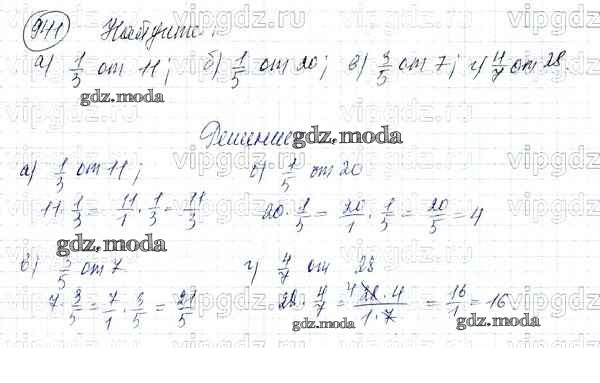 941 Найдите
а) 1/3 от 11; б) 1/5 от 20; в) 3/5 от 7; г) 4/7 от 28.
gdz.moda
Решение
gdz.moda
а) 1/3 от 11; б) 1/5 от 20
11·1/3 = 11/1 · 1/3 = 11/3 20·1/5 = 20/1 · 1/5 = 20/5 = 4
gdz.moda
в) 3/5 от 7 г) 4/7 от 28
7·3/5 = 7/1 · 3/5 = 21/5 28·4/7 = 4 28·4/1·7 = 16/1 = 16.
gdz.moda gdz.moda
vipgdz.ru